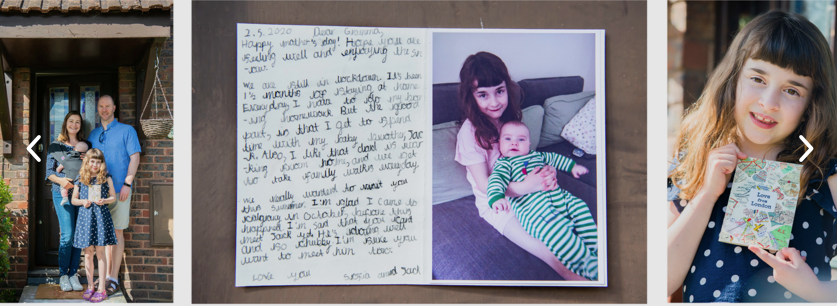 2.5.2020 Dear Grandma,
Happy mother's day! Hope you are
feeling well and enjoying the sn
-ow.
we are still in lockdown. It's been
months of staying at home.
Everyday, I have to do my bor
-ing homework. But the good
part, is that I get to spend
time with my baby brother, Jac
-k. Also, I like that dad is wor
-king from home, and we get
to take family walks everyday.
we really wanted to visit you
this summer. I'm glad I came to
calgary in October, before this
happened. I'm sad that you can't
meet Jack yet. He's
and so chubby. I'm sure you
want to meet him too.
Love you Sofia and Jack
Love
from
London